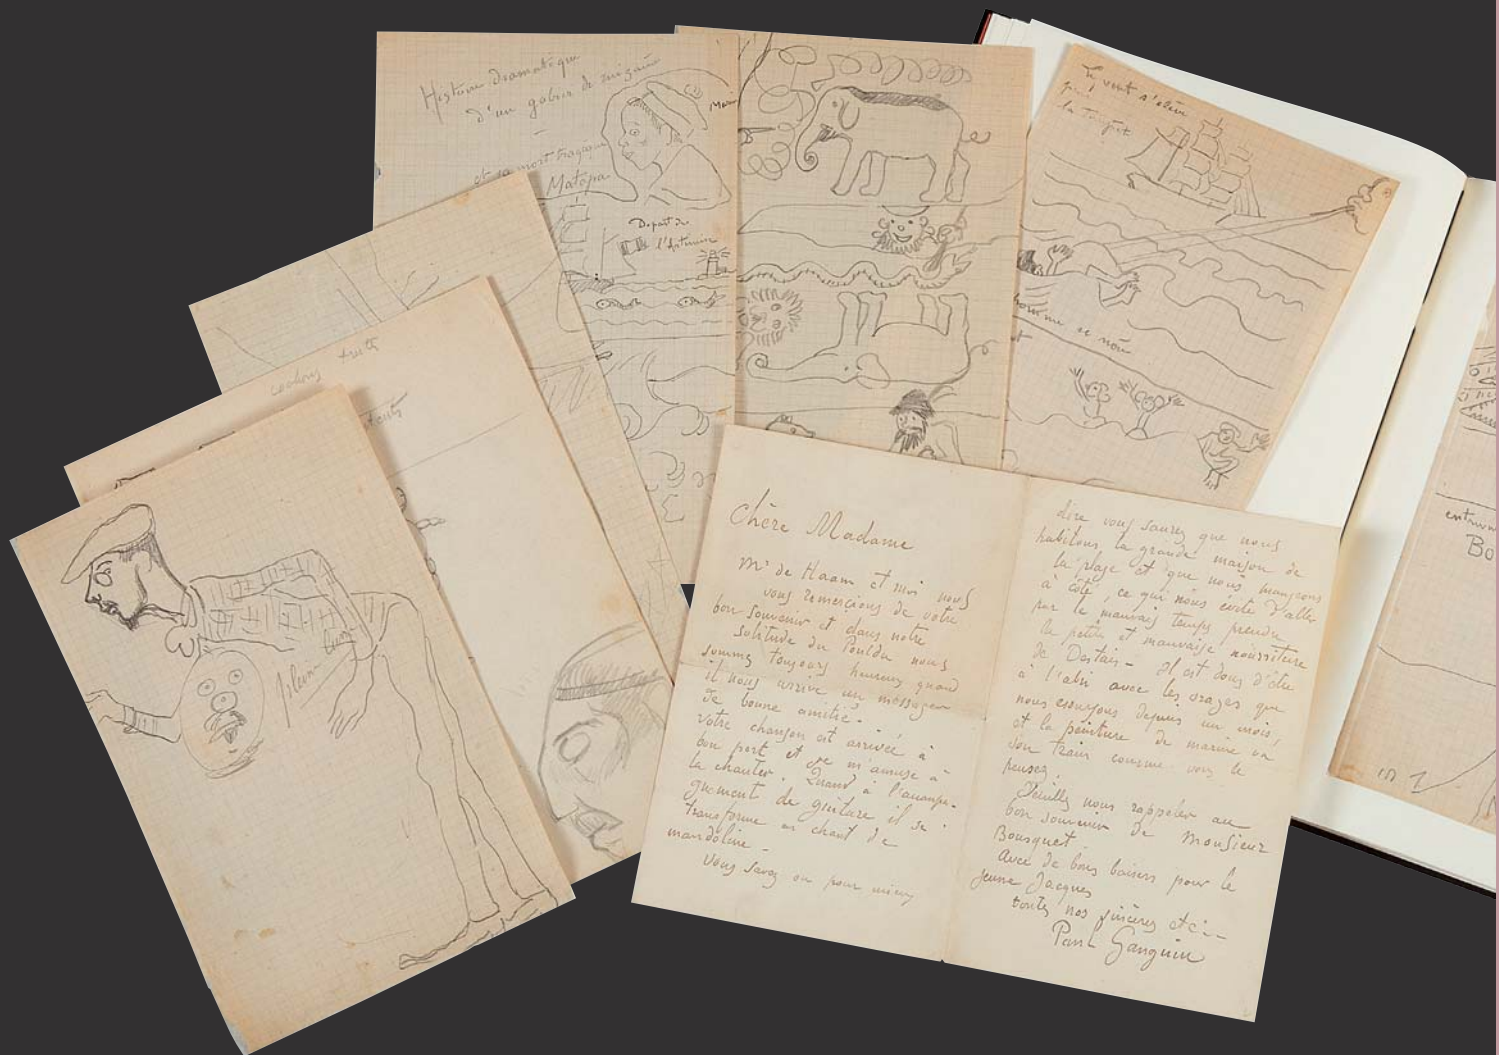 Histoire dramatique
d'un gabier de misaine
et sa mort tragique
Matapa
Depart de
l'Artémise
vent s'élève
la tempête
homme se noie
cochons truits
Chère Madame
Mr de Haan et moi nous
vous remercions de votre
bon souvenir et dans notre
solitude du Pouldu nous
sommes toujours heureux quand
il nous arrive un messager
de bonne amitié.
Votre chanson est arrivée à
bon port et je m'amuse à
la chanter. Quand à l'accompa-
gnement de guitare il se
transforme en chant de
mandoline -
Vous savez ou pour mieux
dire vous saurez que nous
habitons la grande maison de
la plage et que nous mangeons
à côté, ce qui nous évite d'aller
par le mauvais temps prendre
la petite et mauvaise nourriture
de Destais - Il est doux d'être
à l'abri avec les orages que
nous essuyons depuis un mois,
et la peinture de marine va
son train comme vous le
pensez.
Veuillez nous rappeler au
bon souvenir de Monsieur
Bousquet.
Avec de bons baisers pour le
jeune Jacques
toutes nos sincères etc...
Paul Gauguin
Bo